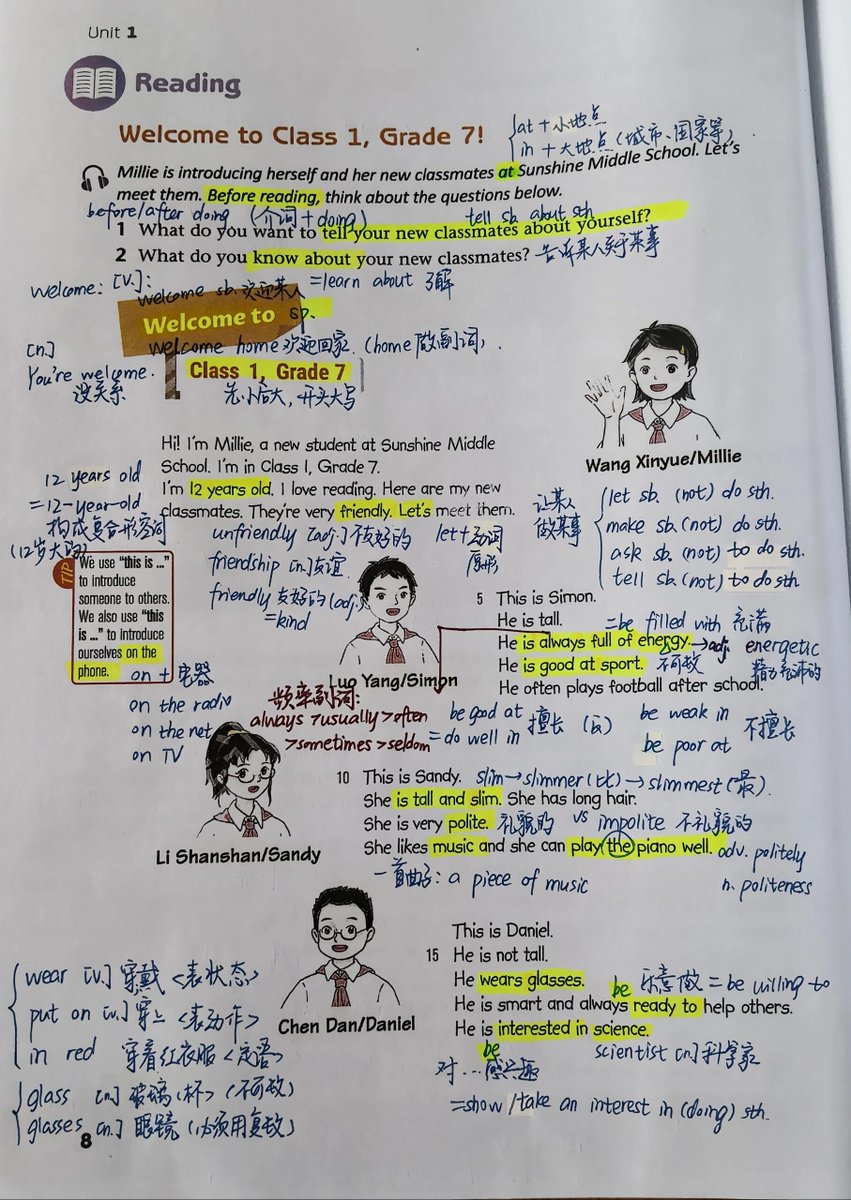 Unit 1
Reading
Welcome to Class 1, Grade 7!
at + 小地点
in + 大地点 (城市、国家等)
Millie is introducing herself and her new classmates at Sunshine Middle School. Let's
meet them. Before reading, think about the questions below.
before/after doing (介词 + doing)
tell sb. about sth
1 What do you want to tell your new classmates about yourself?
2 What do you know about your new classmates? 告诉某人关于某事
welcome: [v.]:
welcome sb. 欢迎某人
=learn about 了解
Welcome to sp.
[n.]
welcome home 欢迎回家 (home 做副词)
You're welcome.
没关系
Class 1, Grade 7
先小后大, 开头大写
Wang Xinyue/Millie
Hi! I'm Millie, a new student at Sunshine Middle
School. I'm in Class 1, Grade 7.
I'm 12 years old. I love reading. Here are my new
classmates. They're very friendly. Let's meet them.
12 years old
=12-year-old
构成复合形容词
(12岁大的)
unfriendly [adj.] 不友好的
friendship [n.] 友谊
friendly 友好的 (adj.)
=kind
let + 动词
原形
让某人
做某事
let sb. (not) do sth.
make sb. (not) do sth.
ask sb. (not) to do sth.
tell sb. (not) to do sth
TIP
We use "this is ..."
to introduce
someone to others.
We also use "this
is ..." to introduce
ourselves on the
phone.
on + 电器
on the radio
on the net
on TV
Luo Yang/Simon
5 This is Simon.
He is tall. =be filled with 充满
He is always full of energy. →adj. energetic
He is good at sport. 不可数 精力充沛的
He often plays football after school.
频率副词:
always >usually >often
>sometimes >seldom
be good at
=do well in
擅长 (反)
be weak in
be poor at
不擅长
Li Shanshan/Sandy
10 This is Sandy. slim→slimmer (比)→slimmest (最).
She is tall and slim. She has long hair.
She is very polite. 礼貌的 vs impolite 不礼貌的
She likes music and she can play the piano well. adv. politely
一首曲子: a piece of music
n. politeness
Chen Dan/Daniel
This is Daniel.
15 He is not tall.
He wears glasses. be 乐意做 = be willing to
He is smart and always ready to help others.
He is interested in science.
be
scientist [n.] 科学家
对…感兴趣
=show/take an interest in (doing) sth.
wear [v.] 穿戴 <表状态>
put on [v.] 穿上 <表动作>
in red 穿着红衣服 <定语>
glass [n.] 玻璃(杯) (不可数)
glasses [n.] 眼镜 (必须用复数)
8